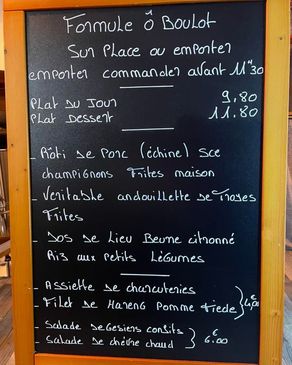 Formule Ô Boulot
Sur Place ou emporter
emporter commander avant 11H30
Plat du Jour 9.80
Plat Dessert 11.80
- Rôti de Porc (échine) Sce
champignons Frites maison
- Veritable andouillette de Troyes
Frites
- Dos de Lieu Beurre citronné
Riz aux Petits Légumes
- Assiette de charcuteries
- Filet de Hareng Pomme Tiede } 6,00€
- Salade de Gesiers confits
- Salade de chèvre chaud } 6.00€